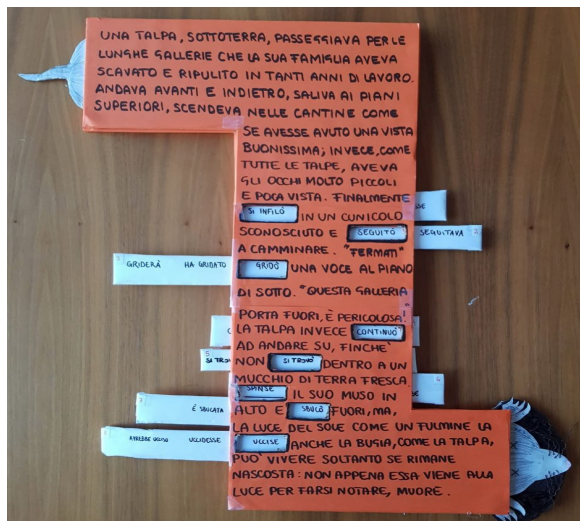 UNA TALPA, SOTTOTERRA, PASSEGGIAVA PER LE
LUNGHE GALLERIE CHE LA SUA FAMIGLIA AVEVA
SCAVATO E RIPULITO IN TANTI ANNI DI LAVORO.
ANDAVA AVANTI E INDIETRO, SALIVA AI PIANI
SUPERIORI, SCENDEVA NELLE CANTINE COME
SE AVESSE AVUTO UNA VISTA
BUONISSIMA; INVECE, COME
TUTTE LE TALPE, AVEVA
GLI OCCHI MOLTO PICCOLI
E POCA VISTA. FINALMENTE
SI INFILÒ IN UN CUNICOLO
SCONOSCIUTO E SEGUITÒ SEGUITAVA
A CAMMINARE. "FERMATI"
GRIDERÀ HA GRIDATO GRIDÒ UNA VOCE AL PIANO
DI SOTTO. "QUESTA GALLERIA
PORTA FUORI, È PERICOLOSA!
LA TALPA INVECE CONTINUÒ
AD ANDARE SU, FINCHÈ
NON SI TROVÒ DENTRO A UN
MUCCHIO DI TERRA FRESCA.
SPINSE IL SUO MUSO IN
È SBUCATA ALTO E SBUCÒ FUORI, MA,
LA LUCE DEL SOLE COME UN FULMINE LA
AVREBBE UCCISO UCCIDESSE UCCISE. ANCHE LA BUGIA, COME LA TALPA,
PUO' VIVERE SOLTANTO SE RIMANE
NASCOSTA: NON APPENA ESSA VIENE ALLA
LUCE PER FARSI NOTARE, MUORE.